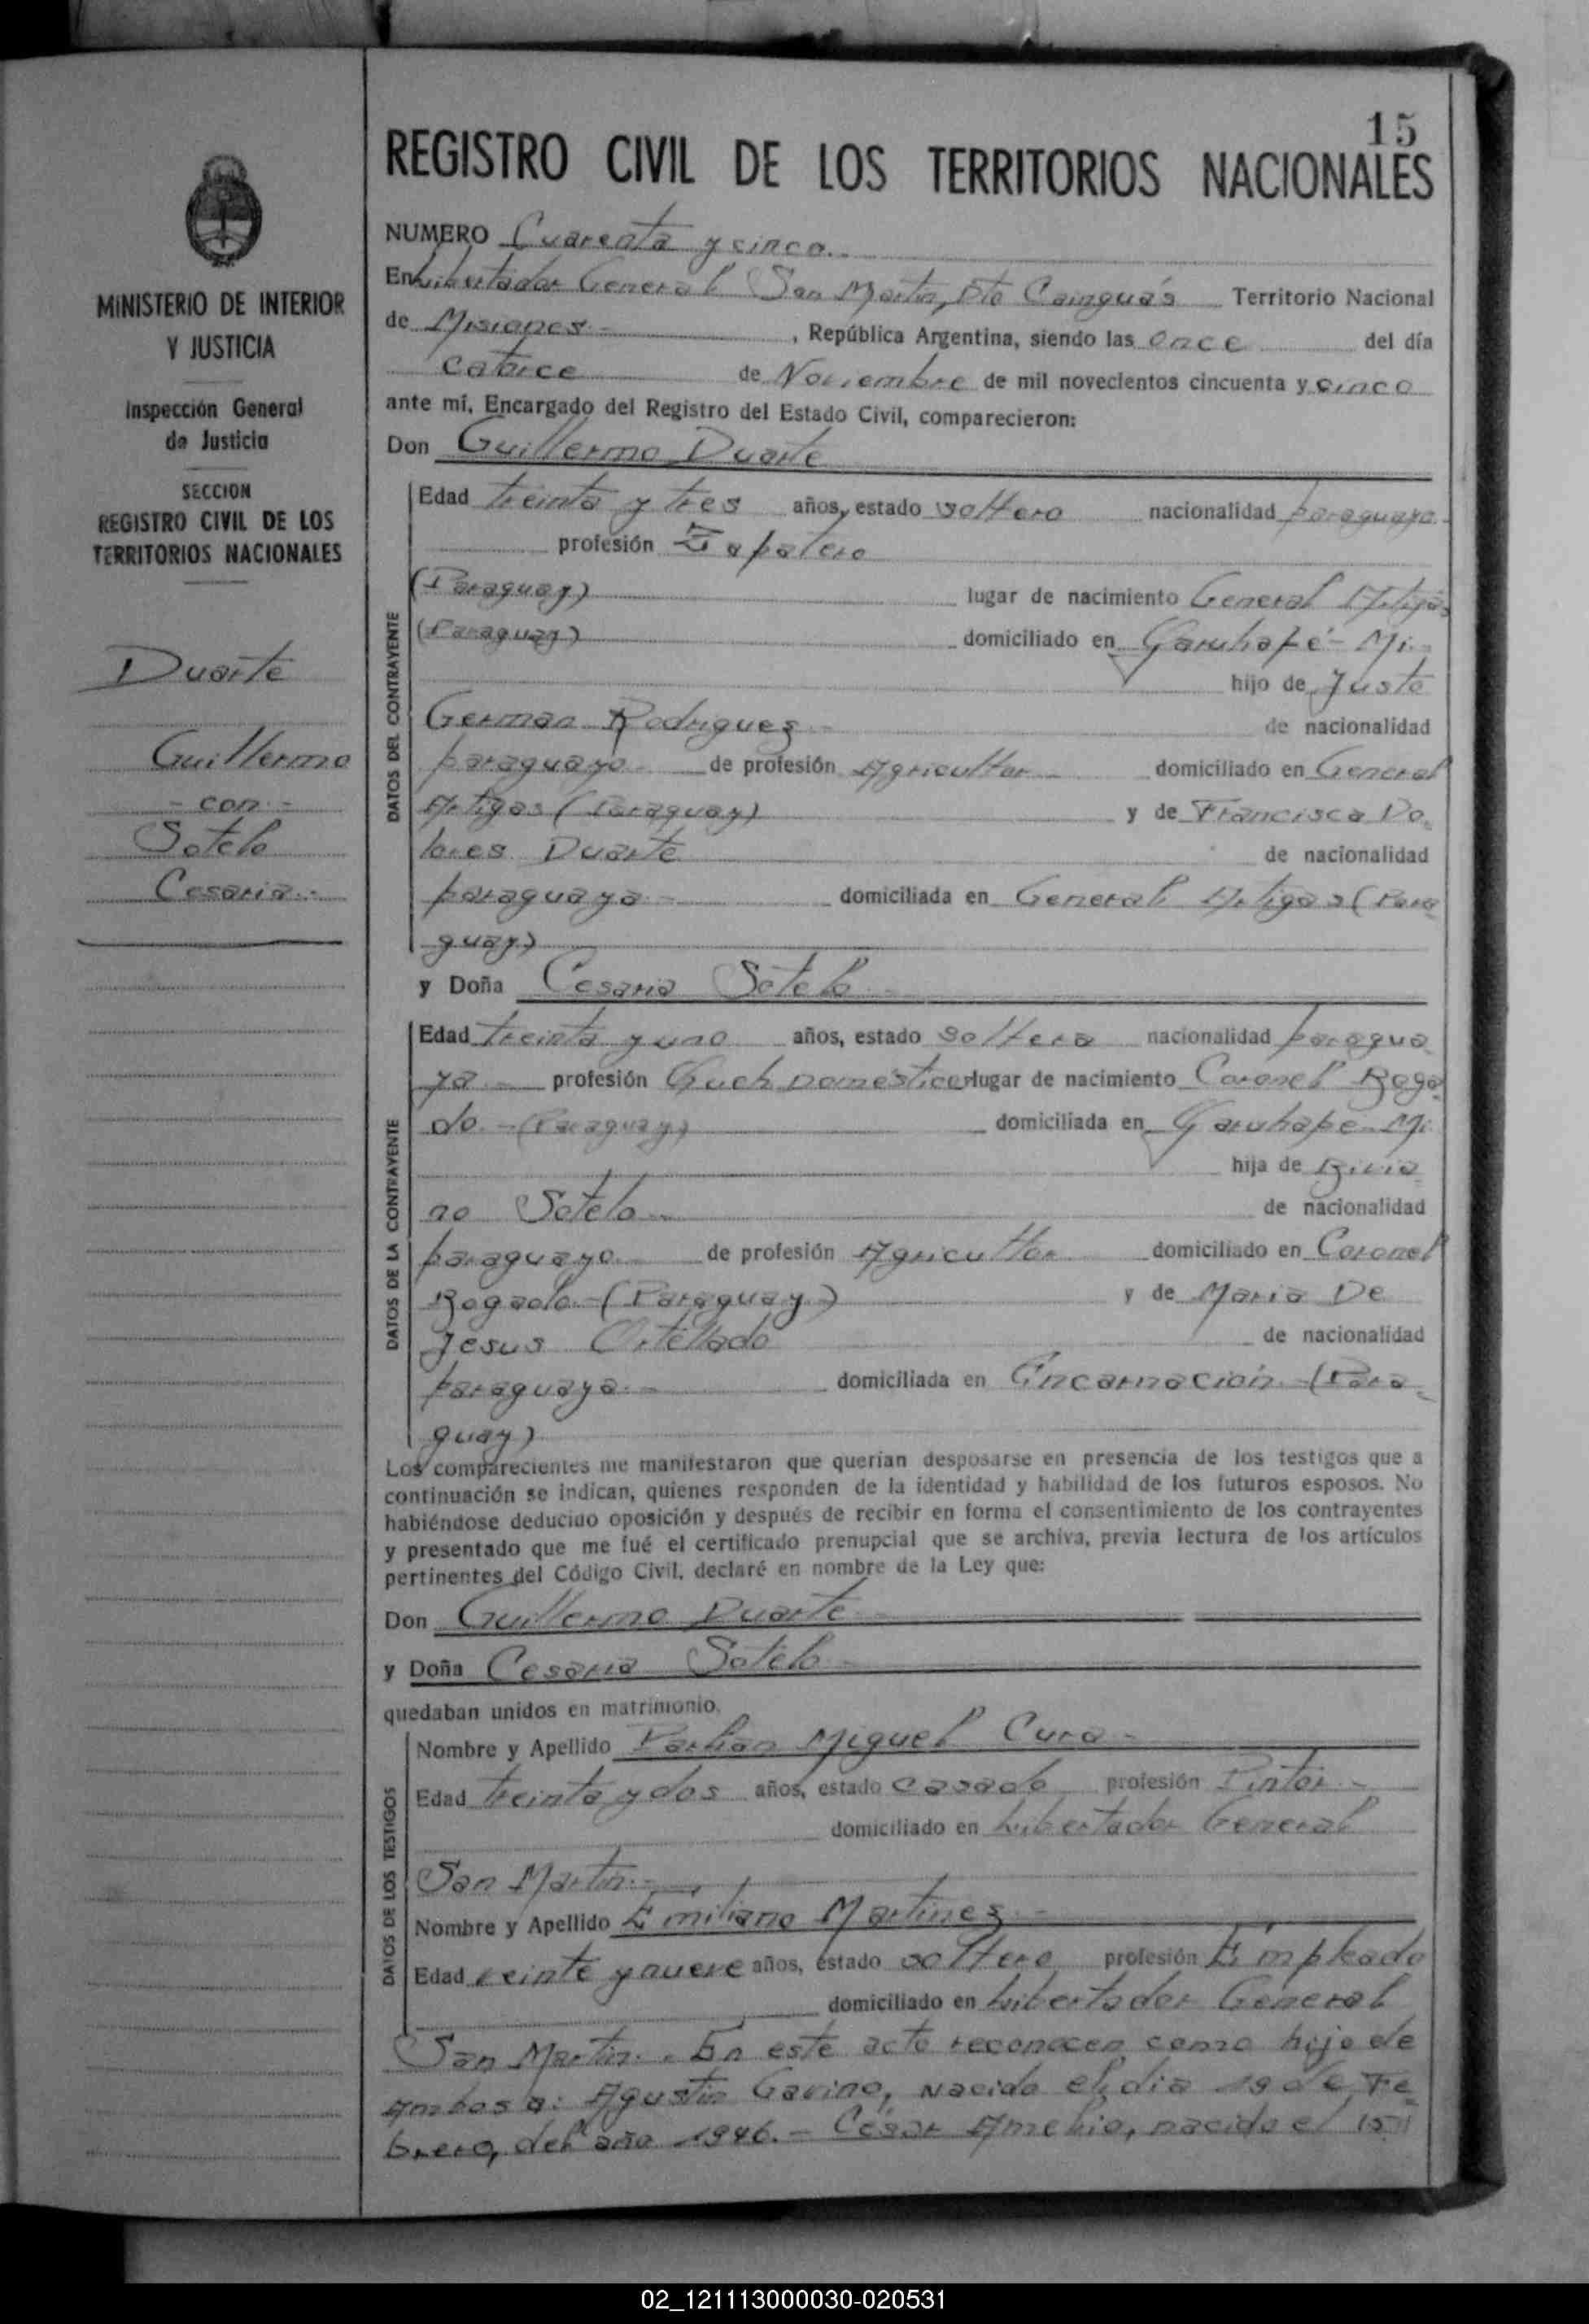 15
REGISTRO CIVIL DE LOS TERRITORIOS NACIONALES
MINISTERIO DE INTERIOR
Y JUSTICIA
Inspección General
de Justicia
SECCION
REGISTRO CIVIL DE LOS
TERRITORIOS NACIONALES
Duarte
Guillermo
- con -
Sotelo
Cesaria.-
NUMERO Cuarenta y cinco.-
En Libertador General San Martin, Dto Cainguás Territorio Nacional
de Misiones.- , República Argentina, siendo las once del día
catorce de Noviembre de mil novecientos cincuenta y cinco
ante mí, Encargado del Registro del Estado Civil, comparecieron:
Don Guillermo Duarte
DATOS DEL CONTRAYENTE
Edad treinta y tres años, estado soltero nacionalidad paraguaya.
profesión Zapatero
(Paraguay) lugar de nacimiento General Artigas
(Paraguay) domiciliado en Garuhapé - Mi.
hijo de Justo
German Rodriguez - de nacionalidad
paraguayo - de profesión Agricultor - domiciliado en General
Artigas (Paraguay) y de Francisca Do-
lores Duarte de nacionalidad
paraguaya.- domiciliada en General Artigas (Para-
guay)
y Doña Cesaria Sotelo -
DATOS DE LA CONTRAYENTE
Edad treinta y uno años, estado soltera nacionalidad paragua
ya - profesión Queh Domésticos lugar de nacimiento Coronel Boga
do.-(Paraguay) domiciliada en Garuhape - Mi.
hija de Bivia
no Sotelo.- de nacionalidad
paraguayo.- de profesión Agricultor domiciliado en Coronel
Bogado.-(Paraguay) y de Maria De
Jesus Ortellado de nacionalidad
paraguaya.- domiciliada en Encarnación.-(Para-
guay)
Los comparecientes me manifestaron que querían desposarse en presencia de los testigos que a
continuación se indican, quienes responden de la identidad y habilidad de los futuros esposos. No
habiéndose deducido oposición y después de recibir en forma el consentimiento de los contrayentes
y presentado que me fué el certificado prenupcial que se archiva, previa lectura de los artículos
pertinentes del Código Civil, declaré en nombre de la Ley que:
Don Guillermo Duarte -
y Doña Cesaria Sotelo -
quedaban unidos en matrimonio.
DATOS DE LOS TESTIGOS
Nombre y Apellido Miguel Cura -
Edad treinta y dos años, estado casado profesión Pintor.-
domiciliado en Libertador General
San Martin.-
Nombre y Apellido Emiliano Martinez -
Edad veinte y nueve años, estado soltero profesión Empleado
domiciliado en Libertador General
San Martin.. En este acto reconocen como hijo de
Ambos a: Agustin Gavino, nacido el dia 19 de Fe-
brero, del año 1946.- César Amelio, nacido el 15
02_121113000030-020531